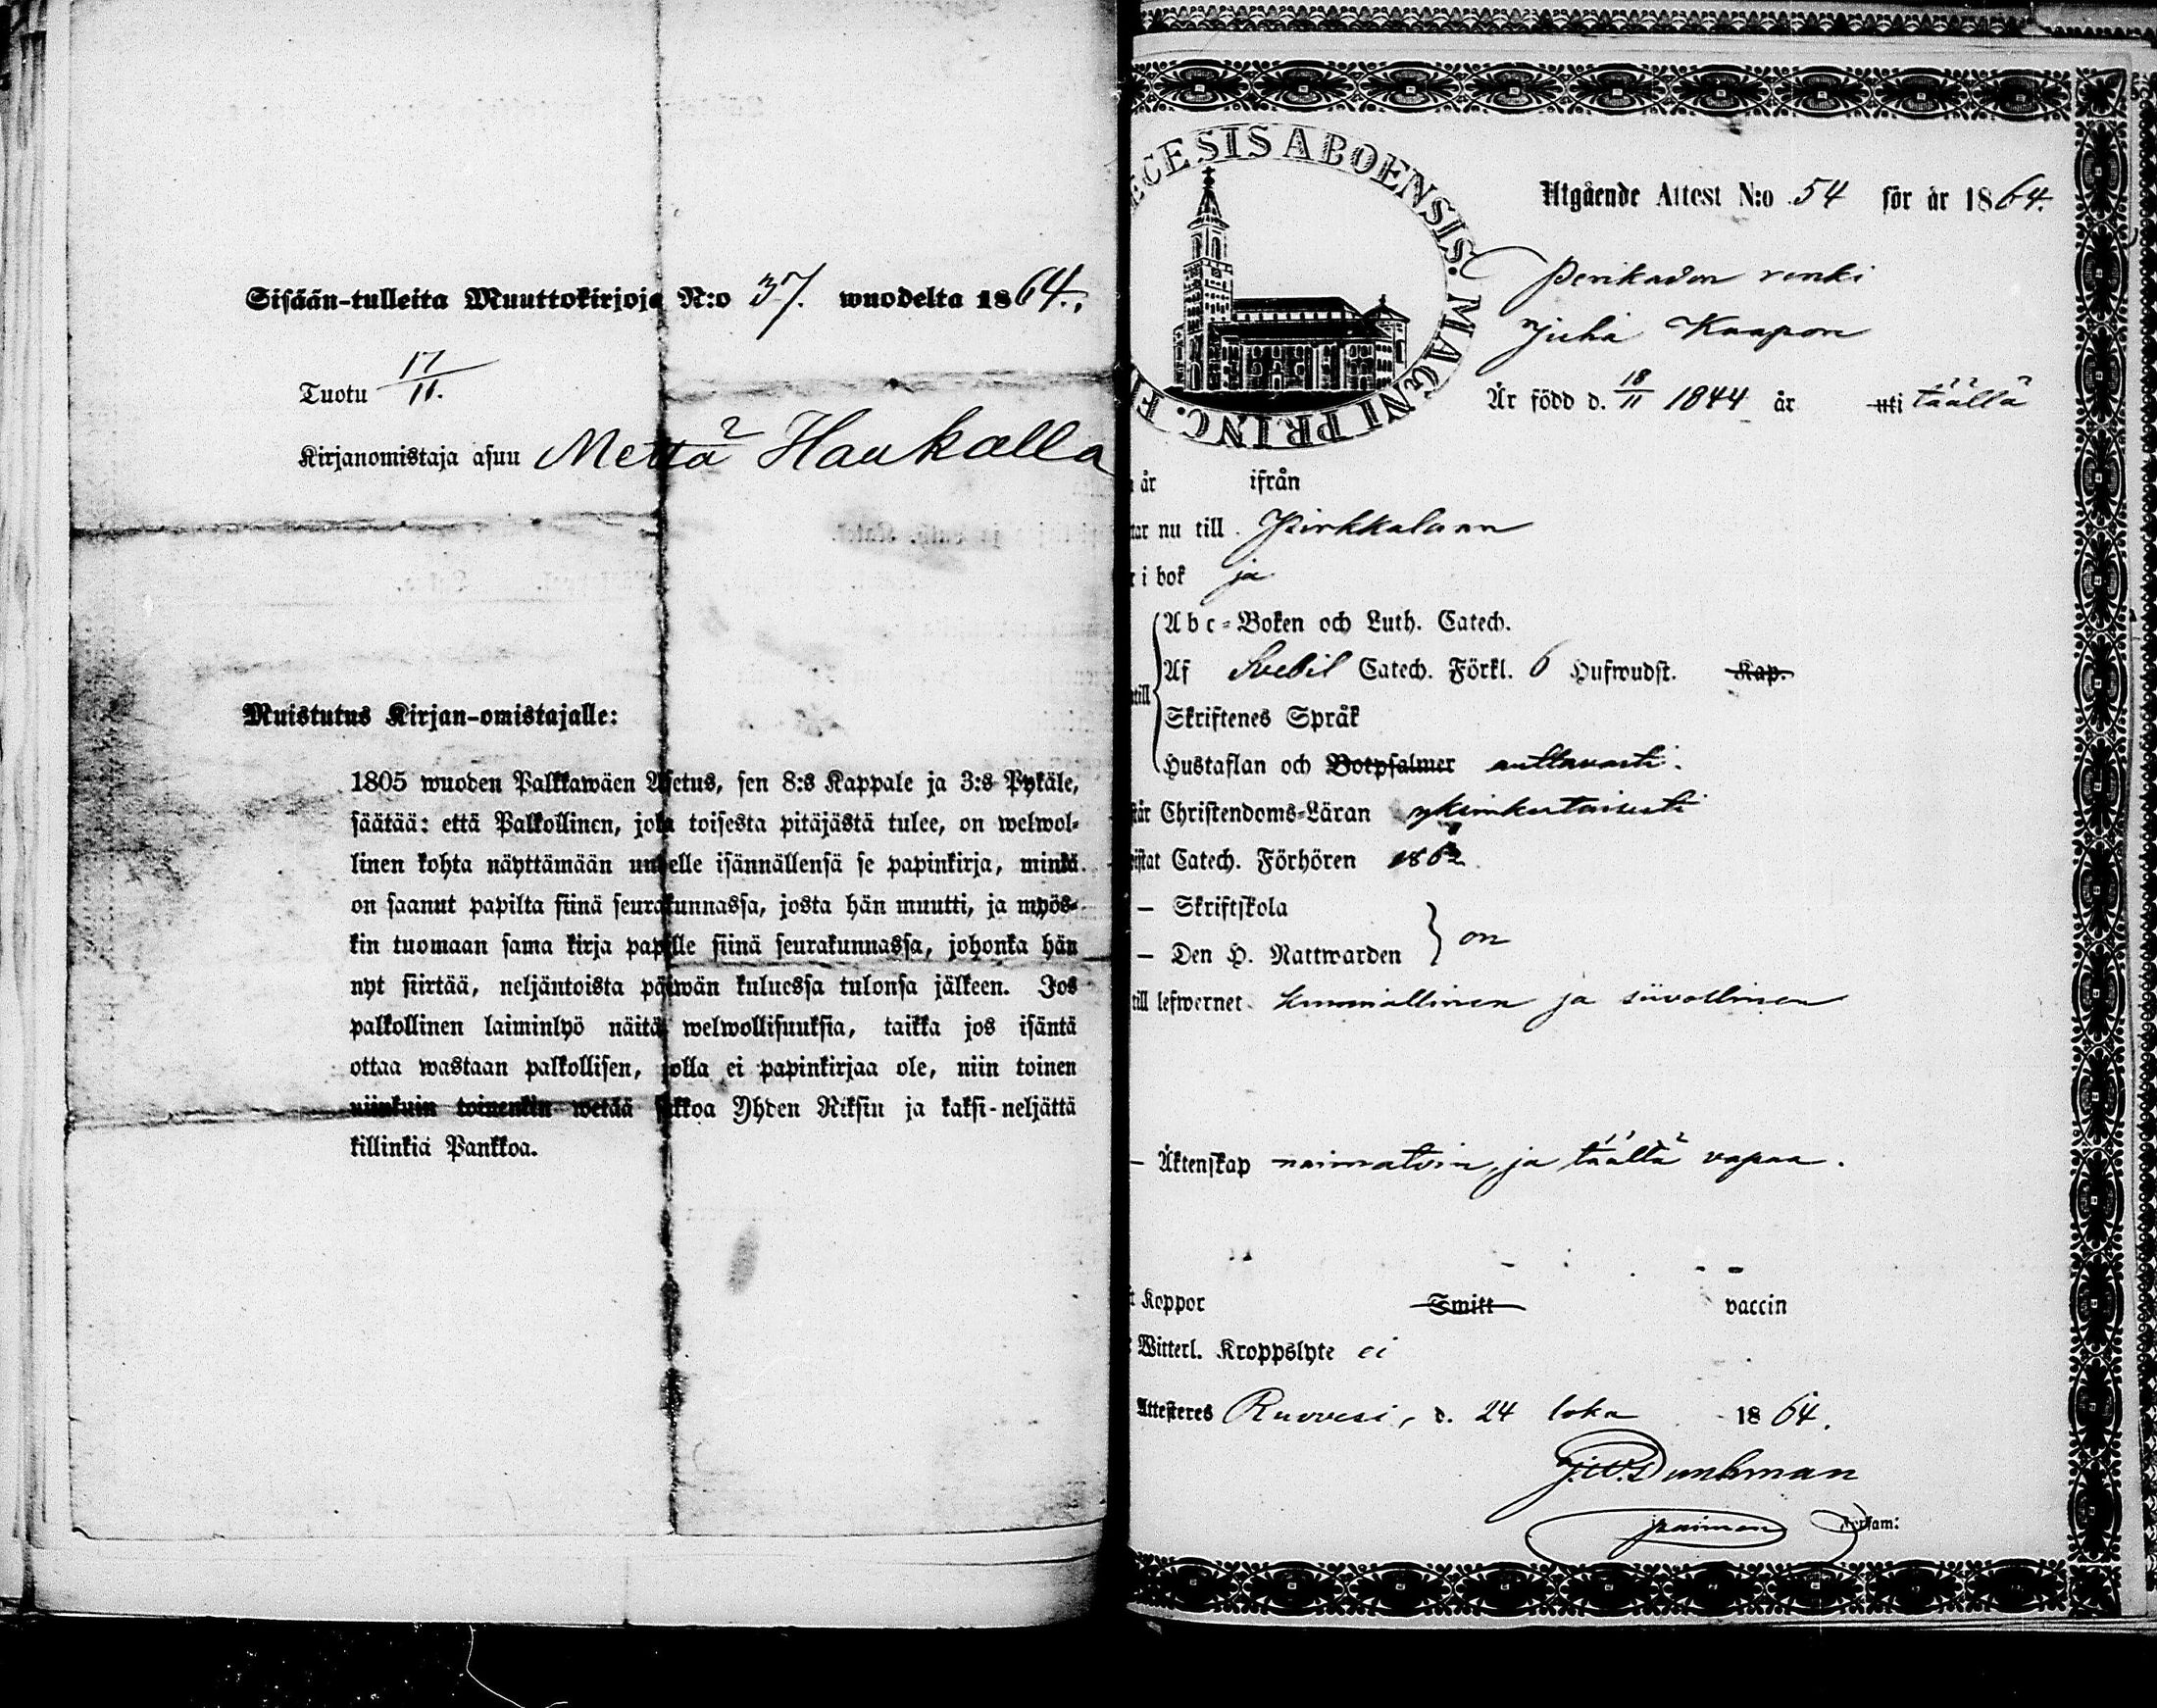 Sisään-tulleita Muuttokirjoja N:o 37. wuodelta 1864.
Tuotu 17/11.
Kirjanomistaja asuu Mettä Haukalla
Muistutus Kirjan-omistajalle:
1805 wuoden Palkkawäen Asetus, sen 8:s Kappale ja 3:s Pykäle,
säätää: että Palkollinen, joka toisesta pitäjästä tulee, on welwol-
linen kohta näyttämään uudelle isännällensä se papinkirja, minkä
on saanut papilta siinä seurakunnassa, josta hän muutti, ja myös-
kin tuomaan sama kirja papille siinä seurakunnassa, johonka hän
nyt siirtää, neljäntoista päiwän kuluessa tulonsa jälkeen. Jos
palkollinen laiminlyö näitä welwollisuuksia, taikka jos isäntä
ottaa wastaan palkollisen, jolla ei papinkirjaa ole, niin toinen
niinkuin toinenkin wetää sakkoa Yhden Riksin ja kaksi-neljättä
killinkiä Pankkoa.
ECESIS ABOENSIS. MAGNI PRINC. F
Utgående Attest N:o 54 för år 1864.
renki
Juha Kaapon
Är född d. 18/11 1844 år uti täällä
år ifrån
tar nu till Pirkkalaan
r i bok ja
Abc-Boken och Luth. Catech.
till Af Svebil Catech. Förkl. 6 Hufwudst. Kap.
Skriftenes Språk
Hustaflan och Botpsalmer auttavasti.
står Christendoms-Läran yksinkertaisesti
istat Catech. Förhören 1862
— Skriftskola
— Den H. Nattwarden } on
till lefwernet kunniallinen ja siivollinen
— Äktenskap naimatoin, ja täältä vapaa.
t Koppor Smitt vaccin
Witterl. Kroppslyte ei
Attesteres Ruovesi, d. 24 loka 1864.
J.W. Durchman